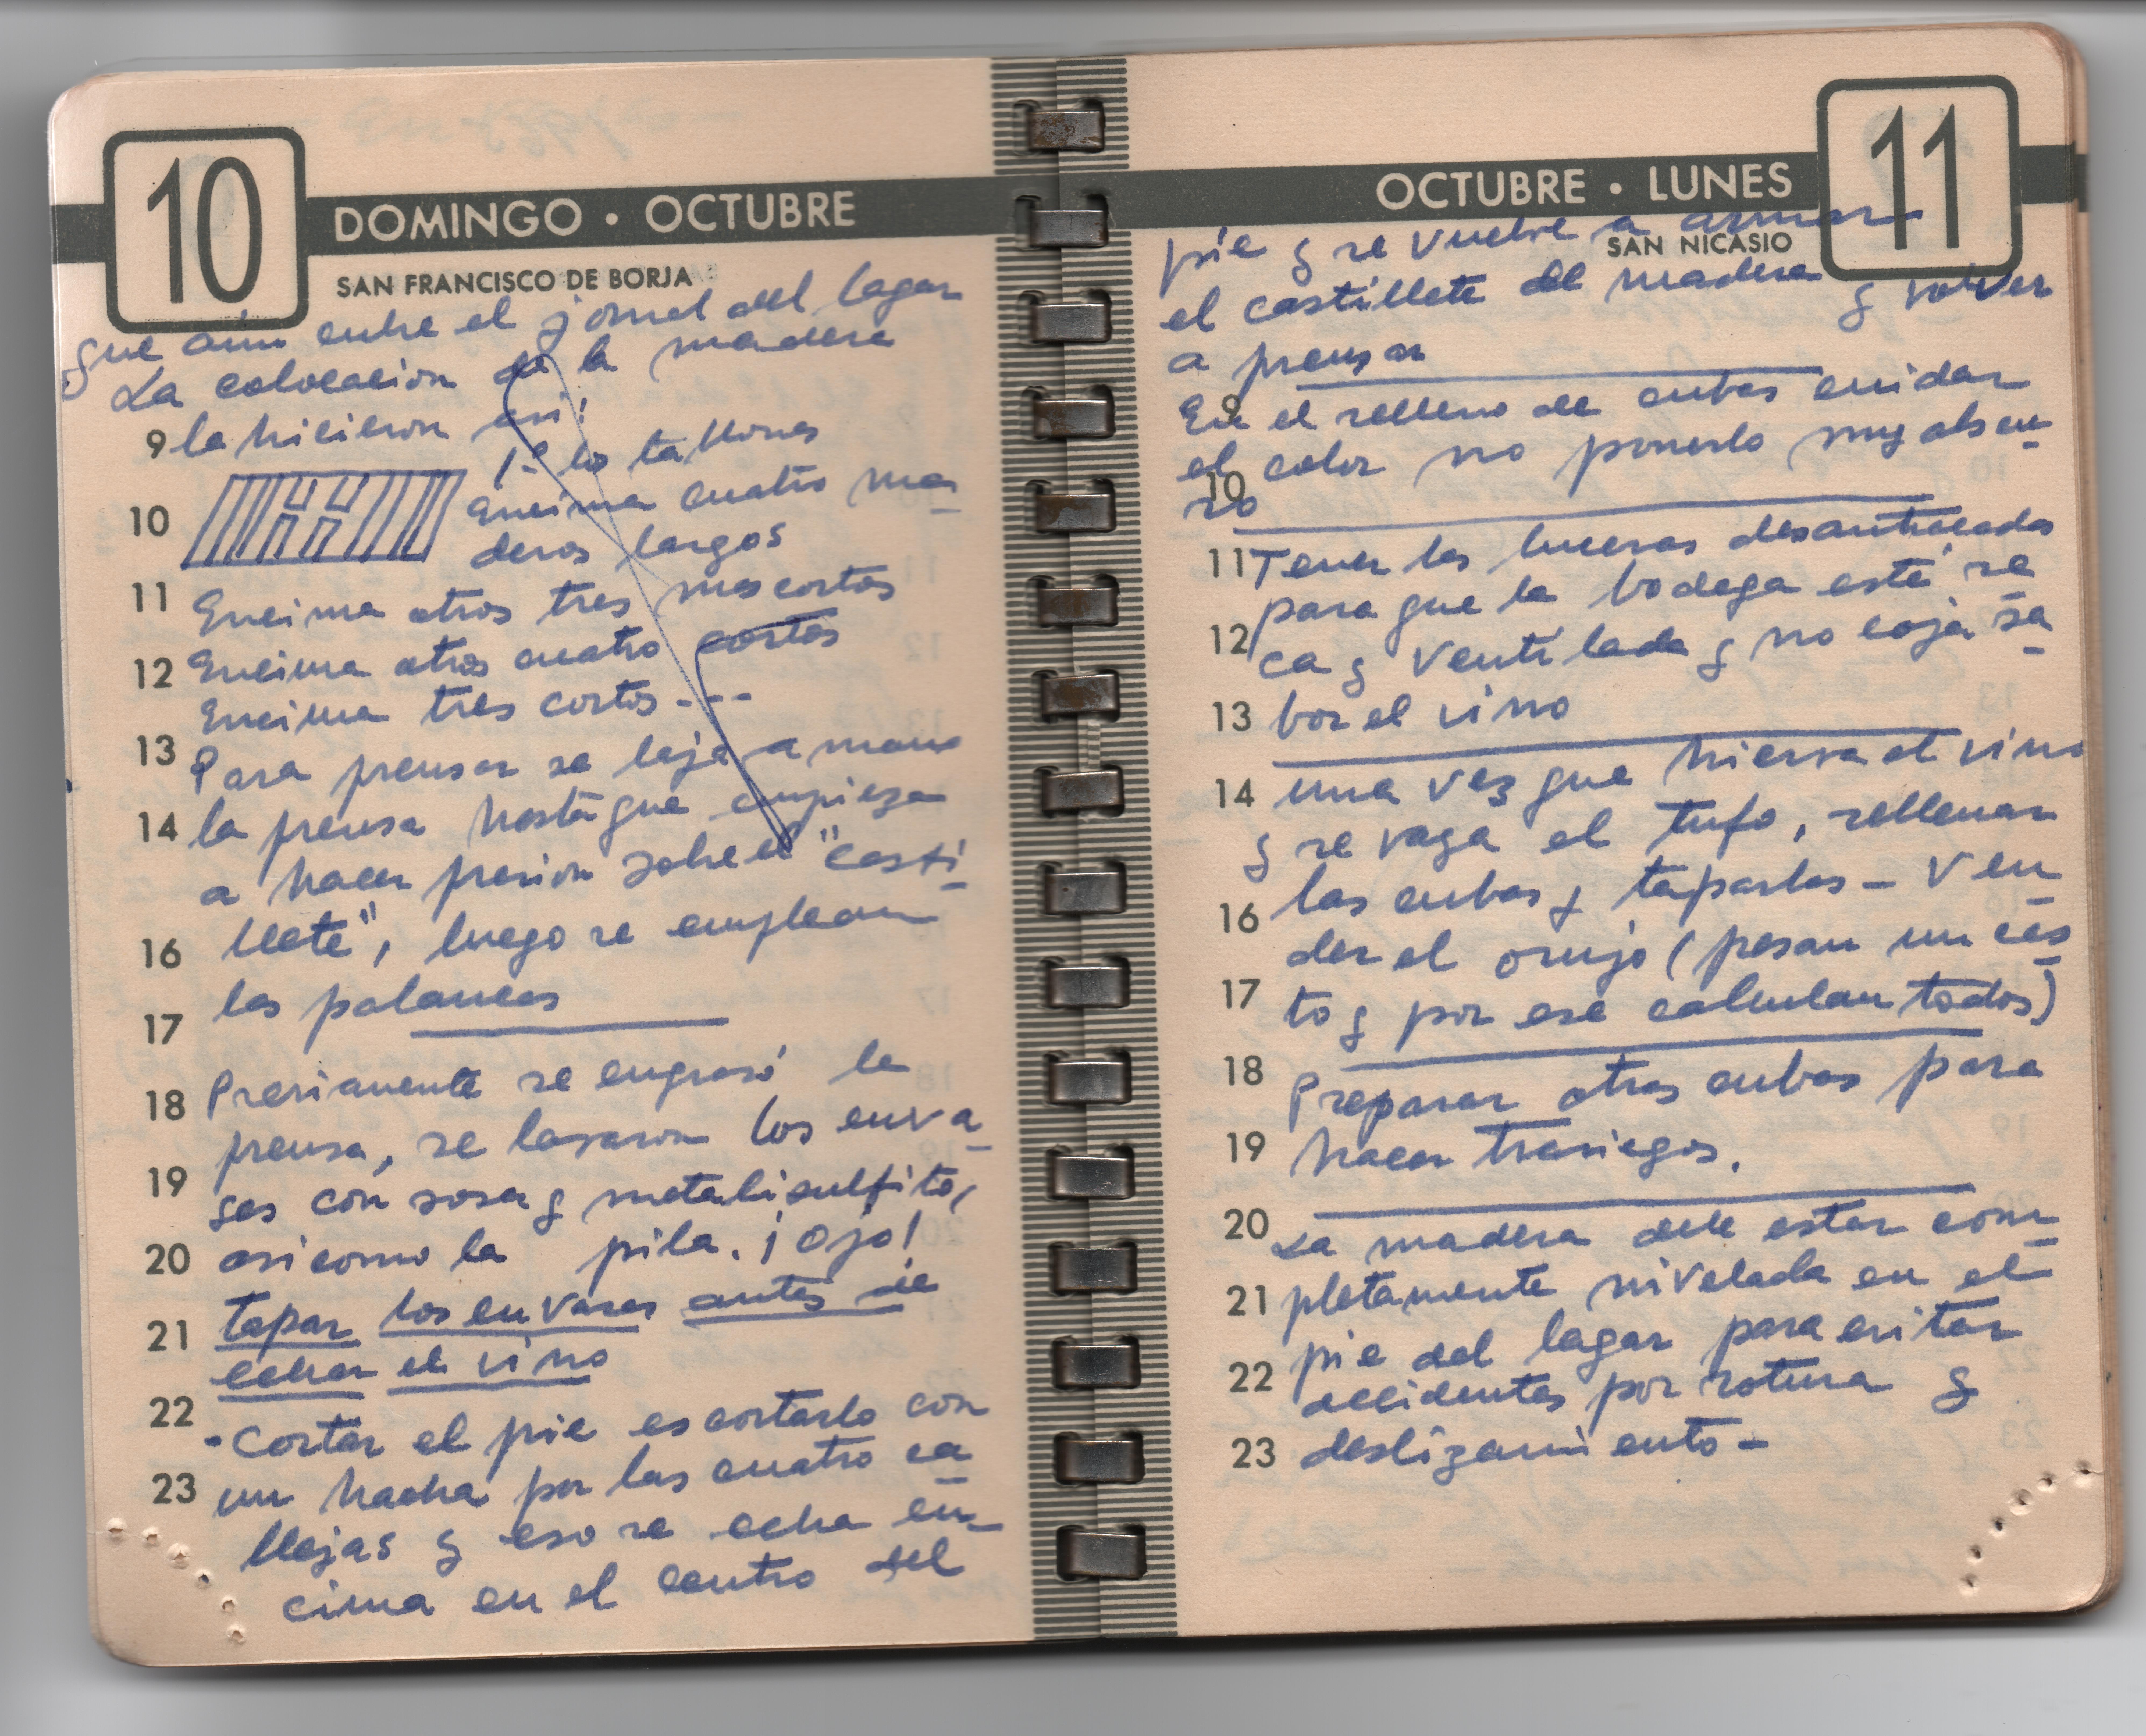 10
DOMINGO · OCTUBRE
SAN FRANCISCO DE BORJA
que aun entre el jornal del lagar
La colocacion de la madera
9 la hicieron asi:
1º los tablones
10 Encima cuatro ma-
deros largos
11 Encima otros tres mas cortos
12 Encima otros cuatro cortos
Encima tres cortos - - -
13 Para prensar se baja a mano
14 la prensa hasta que empieza
a hacer presion sobre el "casti-
16 llete", luego se emplean
17 las palancas
18 Previamente se engrasó la
prensa, se lavaron los enva-
19 ses con sosa y metabisulfito,
20 asi como la pila. ¡Ojo!
21 tapar los envases antes de
echar el vino
22 - Cortar el pie es cortarlo con
23 un hacha por las cuatro ca-
llejas y eso se echa en-
cima en el centro del
11
OCTUBRE · LUNES
SAN NICASIO
pie y se vuelve a armar
el castillete de madera y volver
a prensar
9 En el relleno de cubas cuidar
el color no ponerlo muy obscu-
10 ro
11 Tener las luceras desatrancadas
para que la bodega esté se-
12 ca y ventilada y no coja sa-
13 bor el vino
14 una vez que hierva el vino
y se vaya el tufo, rellenar
16 las cubas y taparlas - Ven-
der el orujo (pesan un ces-
17 to y por ese calculan todos)
18 Preparar otras cubas para
19 hacer trasiegos.
20 La madera debe estar com-
21 pletamente nivelada en el
pie del lagar para evitar
22 accidentes por rotura y
23 deslizamiento -